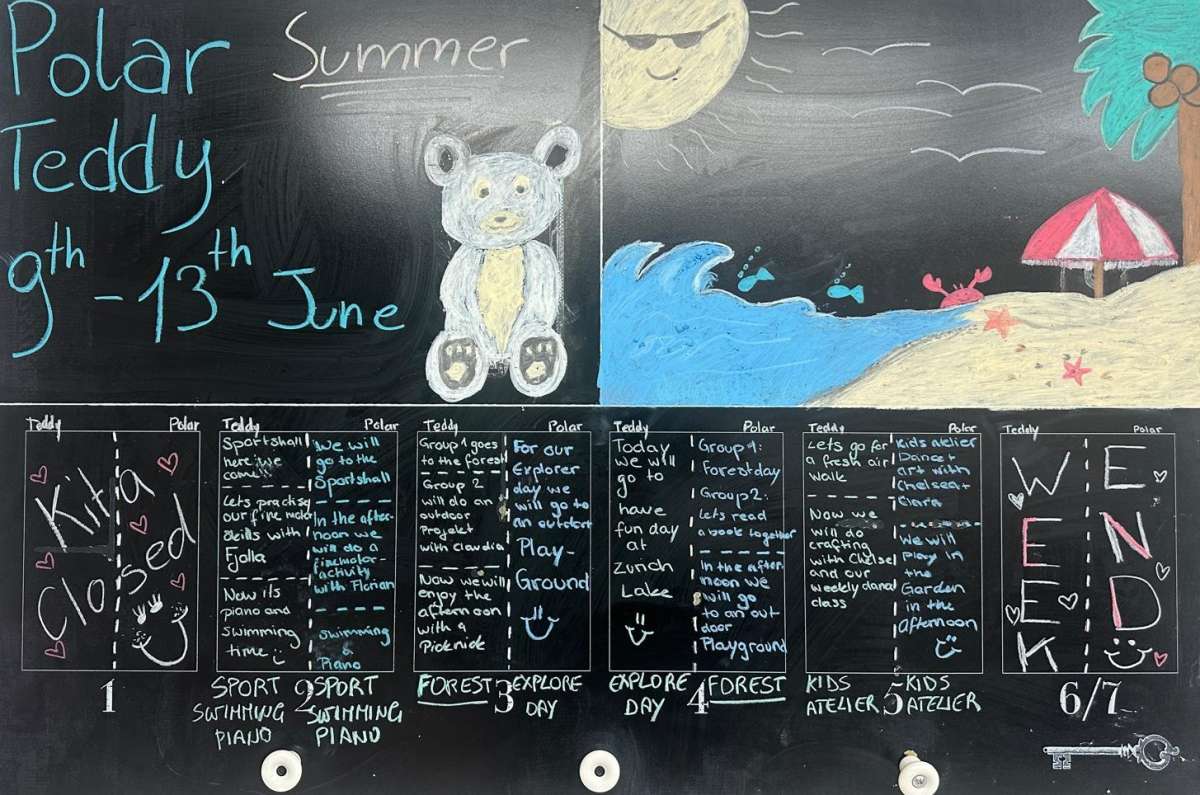 Polar
Summer
Teddy
9th - 13th June
Teddy Polar
Kita
Closed
1
Teddy
Sportshall
here we
come
Lets practise
our fine motor
skills with
Fjolla
Now its
piano and
swimming
time
Polar
We will
go to the
Sportshall
In the after-
noon we
will do a
finemotor-
activity
with Florian
Swimming
&
Piano
SPORT
SWIMMING
PIANO
2
SPORT
SWIMMING
PIANO
Teddy
Group 1 goes
to the forest
Group 2
will do an
outdoor
Projekt
with Claudia
Now we will
enjoy the
afternoon
with a
Picknick
Polar
For our
Explorer
day we
will go to
an outdoor
Play-
Ground
FOREST
3
EXPLORE
DAY
Teddy
Today
we will
go to
have
fun day
at
zurich
Lake
Polar
Group 1:
Forestday
Group 2:
Lets read
a book together
In the after-
noon we
will go
to an out
door
Playground
EXPLORE
DAY
4
FOREST
Teddy
Lets go for
a fresh air
walk
Now we
will do
crafting
with Chelsea
and our
weekly dance
class
Polar
Kids Atelier
Dance +
art with
Chelsea +
We will
play in
the
Garden
in the
afternoon
KIDS
ATELIER
5
KIDS
ATELIER
Teddy Polar
WEEK
END
6/7